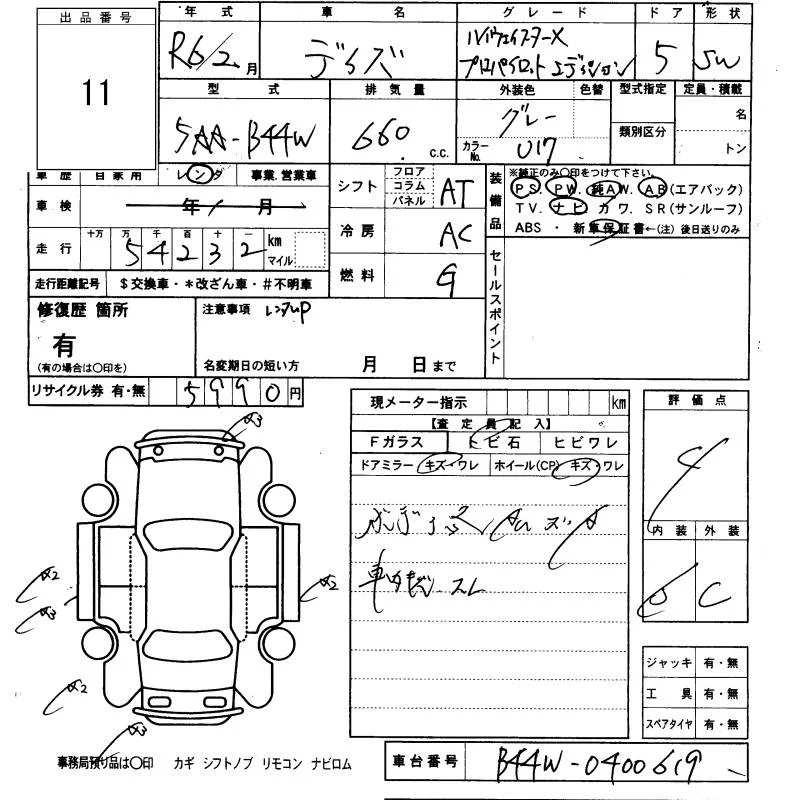 出品番号
11
年式 車名 グレード ドア 形状
R6/2月 デイズ ハイウェイスターX
プロパイロットエディション 5 SW
型式 排気量 外装色 色替 型式指定 定員・積載
5AA-B44W 660 c.c. グレー 名
カラーNo. 017 類別区分 トン
車歴 自家用 レンタ 事業.営業車
車検 年 月
走行 十万 万 千 百 十 一 km マイル
54232
走行距離記号 $交換車・*改ざん車・#不明車
シフト フロア コラム パネル AT
冷房 AC
燃料 G
装備品 ※純正のみ○印をつけて下さい。
PS. PW. 純AW. AB(エアバック)
TV. ナビ カワ. SR(サンルーフ)
ABS ・ 新車保証書←(注)後日送りのみ
セールスポイント
修復歴 箇所
有
(有の場合は○印を)
注意事項 レンタUP
名変期日の短い方 月 日まで
リサイクル券 有・無 5990円
現メーター指示 km
【査定員記入】
Fガラス トビ石 ヒビワレ
ドアミラー キズ・ワレ ホイール(CP) キズ・ワレ
評価点
4
内装 外装
C
A3
A2
A3
A2
A2
A3
ジャッキ 有・無
工具 有・無
スペアタイヤ 有・無
事務局預り品は○印 カギ シフトノブ リモコン ナビロム
車台番号 B44W-0400619